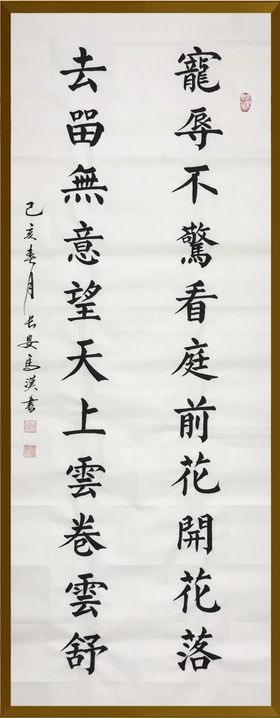 寵辱不驚看庭前花開花落
去留無意望天上雲卷雲舒
己亥春月長安馬漢書